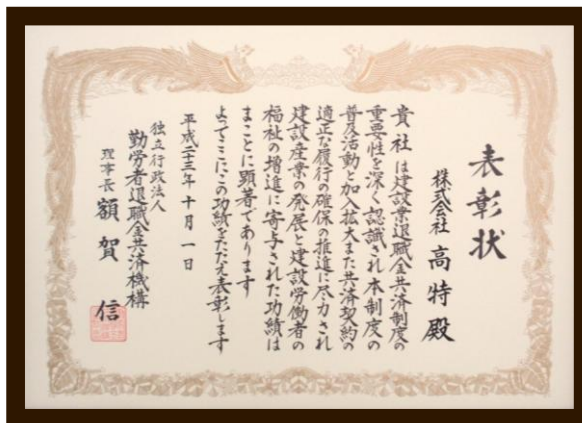 表彰状
株式会社 高特殿
貴社は建設業退職金共済制度の
重要性を深く認識され本制度の
普及活動と加入拡大また共済契約の
適正な履行の確保の推進に尽力され
建設産業の発展と建設労働者の
福祉の増進に寄与された功績は
まことに顕著であります
よってここにこの功績をたたえ表彰します
平成二十三年十月一日
独立行政法人
勤労者退職金共済機構
理事長 額賀 信